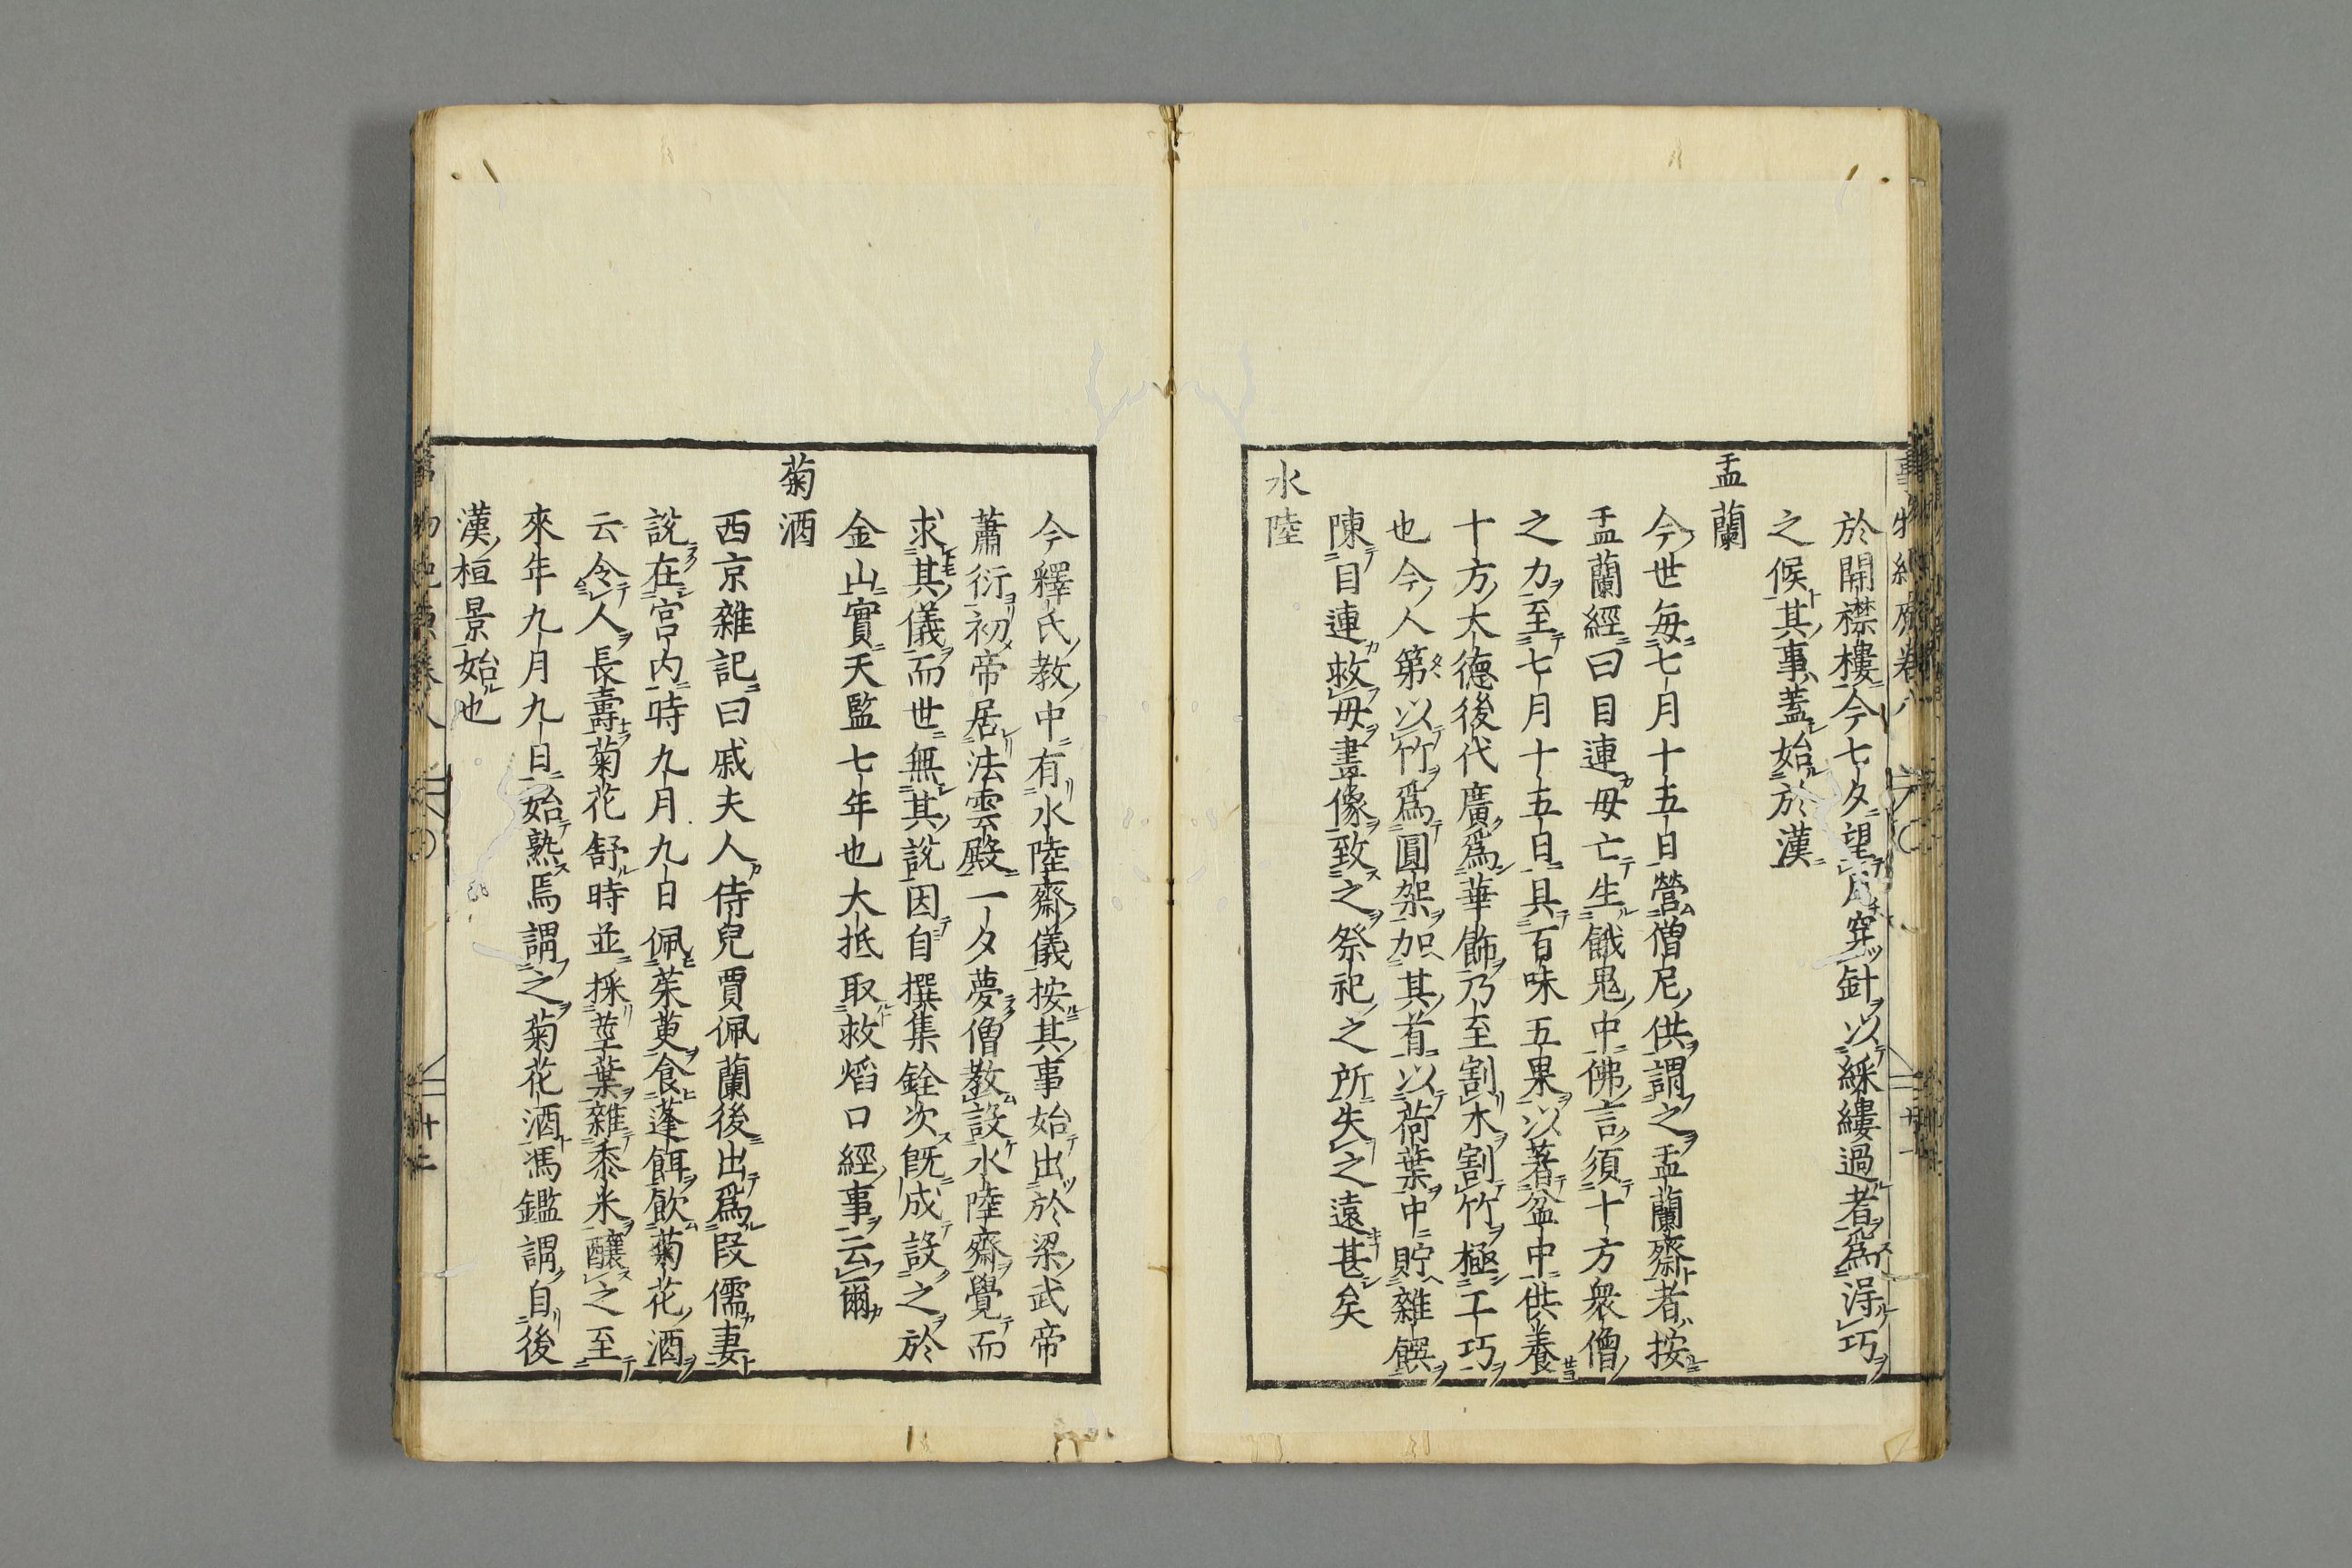 於開襟樓今七夕望月穿針以綵縷過者爲淂巧
之候其事蓋始於漢
盂蘭
今世每七月十五日營僧尼供謂之盂蘭齋者按
盂蘭經曰目連母亡生餓鬼中佛言須十方衆僧
之力至七月十五日具百味五果以著盆中供養
十方大德後代廣爲華飾乃至割木割竹極工巧
也今人第以竹爲圓架加其首以荷葉中貯雜饌
陳目連救母畫像致之祭祀之所失之遠甚矣
水陸
今釋氏教中有水陸齋儀按其事始出於梁武帝
蕭衍初帝居法雲殿一夕夢僧教設水陸齋覺而
求其儀而世無其說因自撰集銓次既成設之於
金山實天監七年也大抵取救焰口經事云爾
菊酒
西京雜記曰戚夫人侍兒賈佩蘭後出爲段儒妻
說在宮内時九月九日佩茱萸食蓬餌飲菊花酒
云令人長壽菊花舒時並採莖葉雜黍米釀之至
來年九月九日始熟焉謂之菊花酒馮鑑謂自後
漢桓景始也